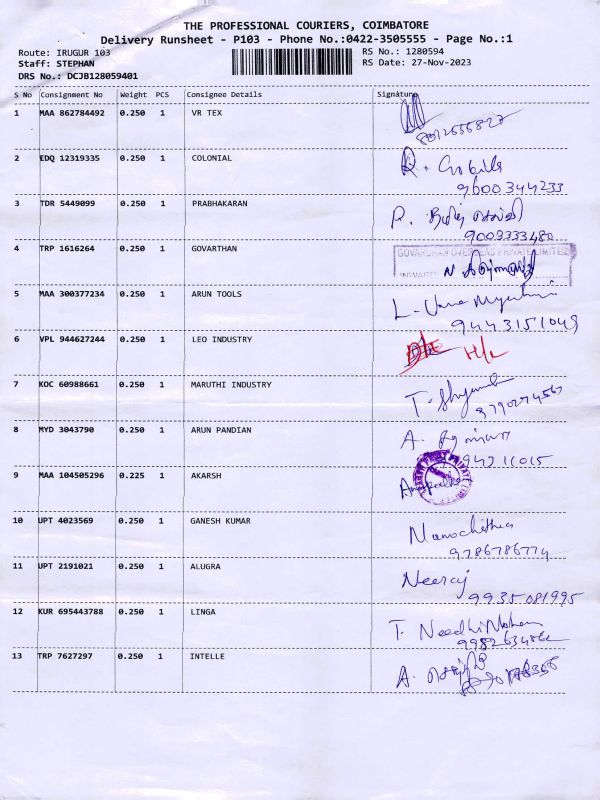 THE PROFESSIONAL COURIERS, COIMBATORE
Delivery Runsheet - P103 - Phone No.:0422-3505555 - Page No.:1
Route: IRUGUR 103 RS No.: 1280594
Staff: STEPHAN RS Date: 27-Nov-2023
DRS No.: DCJB128059401
S No Consignment No Weight PCS Consignee Details Signature
1 MAA 862784492 0.250 1 VR TEX
2 EDQ 12319335 0.250 1 COLONIAL
9600344233
3 TDR 5449099 0.250 1 PRABHAKARAN
9003333480
4 TRP 1616264 0.250 1 GOVARTHAN
GOVARDHAN OVERSEAS PRIVATE LIMITED
INWARD
5 MAA 300377234 0.250 1 ARUN TOOLS
9443151049
6 VPL 944627244 0.250 1 LEO INDUSTRY
7 KOC 60988661 0.250 1 MARUTHI INDUSTRY
8 MYD 3043790 0.250 1 ARUN PANDIAN
9 MAA 104505296 0.225 1 AKARSH
10 UPT 4023569 0.250 1 GANESH KUMAR
9786786774
11 UPT 2191021 0.250 1 ALUGRA
Neeraj
9935081995
12 KUR 695443788 0.250 1 LINGA
T. Needhi Mohan
13 TRP 7627297 0.250 1 INTELLE